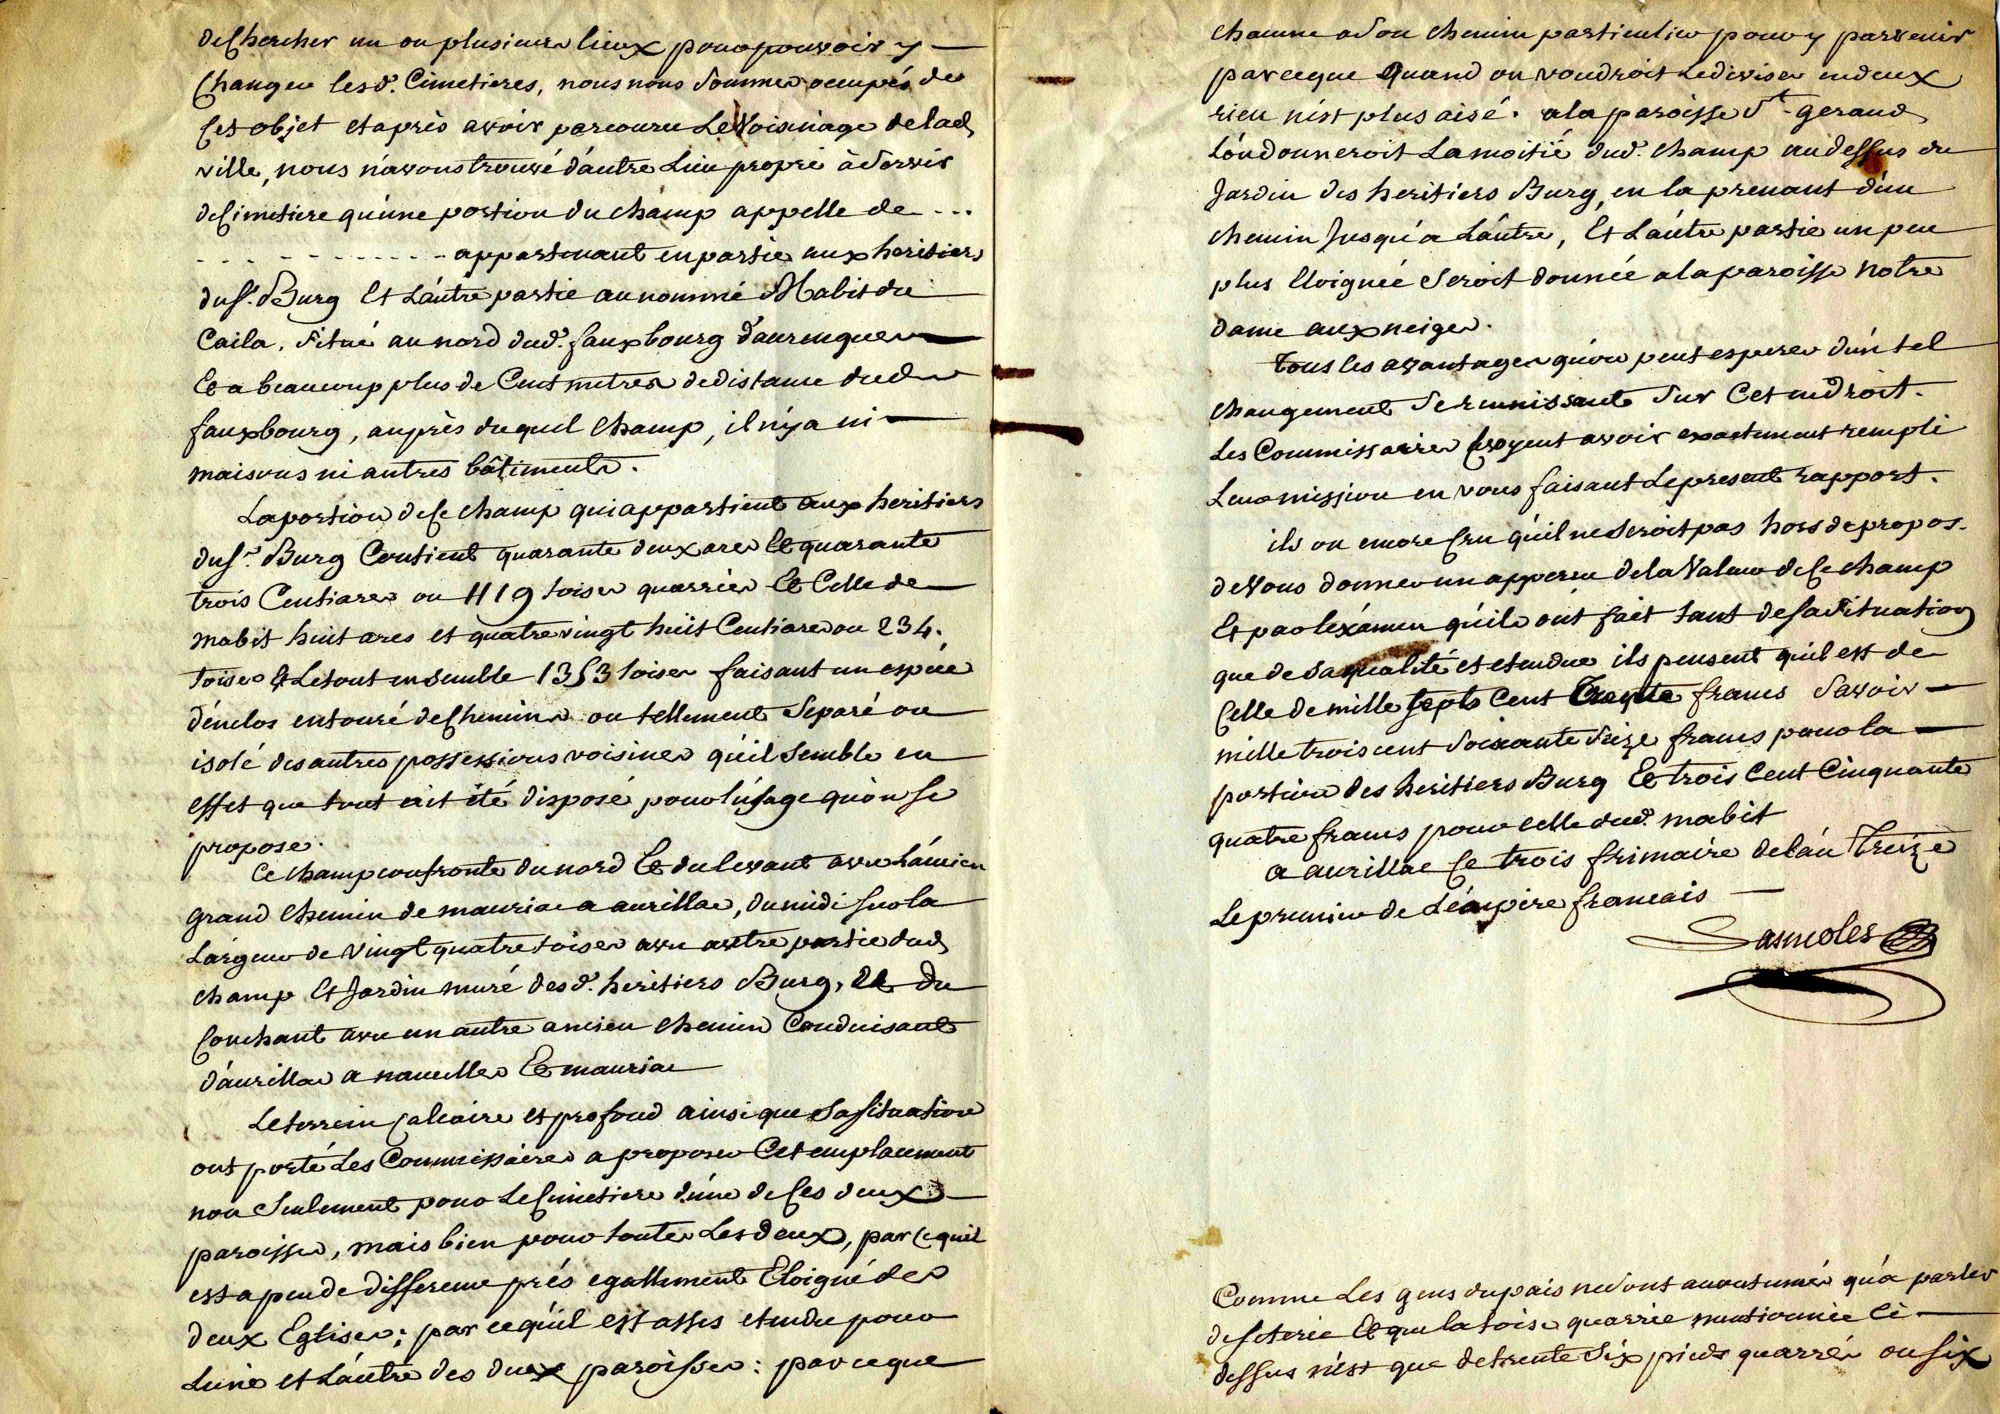 de Chercher un ou plusieurs lieux pour pouvoir y
Changer lesd. Cimetieres, nous nous sommes occupés de
Cet objet et après avoir parcouru le Voisinage de lad.
ville, nous n'avons trouvé d'autre lieu propre à servir
de Cimetiere qu'une portion du champ appellé de ...
- - - - - - - - - - - - appartenant en partie aux heritiers
du Sr. Burg Et L'autre partie au nommé Mabit du
Caila, situé au nord dud. fauxbourg d'aurinques
Et a beaucoup plus de Cent metres de distance dud.
fauxbourg, auprès duquel Champ, il n'y a ni
maisons ni autres bâtiments.
La portion de Ce champ qui appartient aux heritiers
du Sr. Burg Contient quarante deux ares Et quarante
trois Centiares ou 1119 toises quarrées Et Celle de
mabit huit ares et quatre vingt huit Centiares ou 234.
toises Et Le tout ensemble 1353 toises faisant un espèce
d'enclos entouré de Chemins ou tellement Separé ou
isolé des autres possessions voisines qu'il semble en
effet que tout ait été disposé pour l'usage qu'on se
propose.
Ce champ confronte du nord Et du levant avec L'ancien
grand Chemin de mauriac a aurillac, du midi sur la
Largeur de vingt quatre toises avec autre partie dud.
champ Et Jardin muré desd. heritiers Burg, Et du
Couchant avec un autre ancien chemin Conduisant
d'aurillac a naucelles Et mauriac
Le terrein Calcaire et profond ainsi que sa situation
ont porté Les Commissaires a proposer Cet emplacement
non Seulement pour Le Cimetiere d'une de Ces deux
paroisses, mais bien pour toutes Les deux, par Ce qu'il
est a peu de difference prés egallement Eloigné des
deux Eglises; par ce qu'il est assés etendu pour
L'une et L'autre des deux paroisses: par ce que
chacune a son chemin particulier pour y parvenir
par ce que Quand on voudroit Le diviser en deux
rien n'est plus aisé. a la paroisse St. gerand
L'on donneroit La moitié dud. champ au dessus du
Jardin des heritiers Burg, en la prenant d'un
chemin Jusqu'a L'autre, Et L'autre partie un peu
plus Eloignée Seroit donnée a la paroisse Notre
dame aux neiges.
Tous les avantages qu'on peut esperer d'un tel
changement Se reunissent Sur Cet endroit.
Les Commissaires Croyent avoir exactement rempli
Leur mission en vous faisant Le present rapport.
ils on encore Cru qu'il ne Seroit pas hors de propos.
de Vous donner un apperçu de la Valeur de Ce champ
Et par l'examen qu'ils ont fait tant de sa situation
que de sa qualité et etendue ils pensent qu'il est de
Celle de mille sept Cent trente francs Savoir
mille trois cent Soixante Seize francs pour la
portion des heritiers Burg Et trois Cent Cinquante
quatre francs pour celle dud. mabit
a aurillac Ce trois frimaire de l'an Treize
Le premier de L'empire francais
Comme Les gens du pais ne sont accoutumés qu'a parler
de Seterée Et que la toise quarrée mentionnée Ci
dessus n'est que de trente Six pieds quarrés ou six